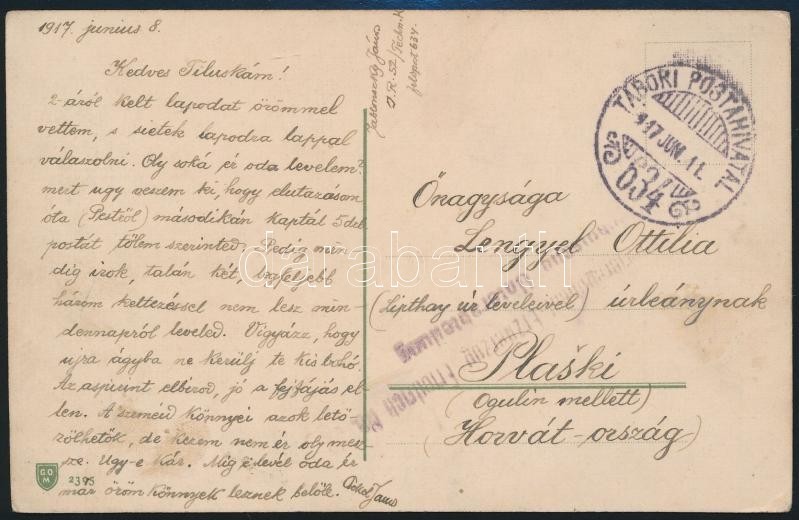 1917. junius 8.
Kedves Tiluskám!
2-áról kelt lapodat örömmel
vettem, s sietek lapodra lappal
válaszolni. Oly soká ér oda levelem?
mert ugy veszem ki, hogy elutazásom
óta (Pestről) másodikán kaptál 5 deb
postát tőlem szerinted. Pedig min-
dig irok, talán két, legfeljebb
három keltezéssel nem lesz min-
dennapról leveled. Vigyázz, hogy
ujra ágyba ne kerülj te kis bohó.
Az aspirint elbirod, jó a fejfájás el-
len. A szemeid könnyei azok letö-
rölhetők, de kezem nem ér oly mesz-
sze. Ugy-e kár. Mig e levél oda ér
már öröm könnyek leznek belőle.
János
Jablonszky János
I.R. 52/Techn.K
feldpost 634.
TÁBORI POSTAHIVATAL
917 JUN. 11.
634
Önagysága
Lengyel Ottilia
(Lipthay úr leveleivel) úrleánynak
Plaški
(Ogulin mellett)
Horvát-ország)
G O M
2395
darabanth